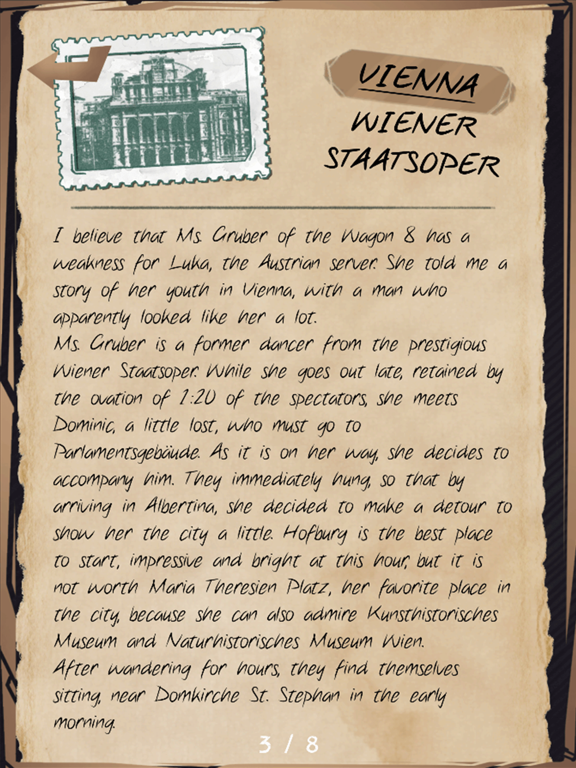 VIENNA
WIENER
STAATSOPER
I believe that Ms. Gruber of the Wagon 8 has a
weakness for Luka, the Austrian server. She told me a
story of her youth in Vienna, with a man who
apparently looked like her a lot.
Ms. Gruber is a former dancer from the prestigious
Wiener Staatsoper. While she goes out late, retained by
the ovation of 1:20 of the spectators, she meets
Dominic, a little lost, who must go to
Parlamentsgebäude. As it is on her way, she decides to
accompany him. They immediately hung, so that by
arriving in Albertina, she decided to make a detour to
show her the city a little. Hofburg is the best place
to start, impressive and bright at this hour, but it is
not worth Maria Theresien Platz, her favorite place in
the city, because she can also admire Kunsthistorisches
Museum and Naturhistorisches Museum Wien.
After wandering for hours, they find themselves
sitting, near Domkirche St. Stephan in the early
morning.
3 / 8